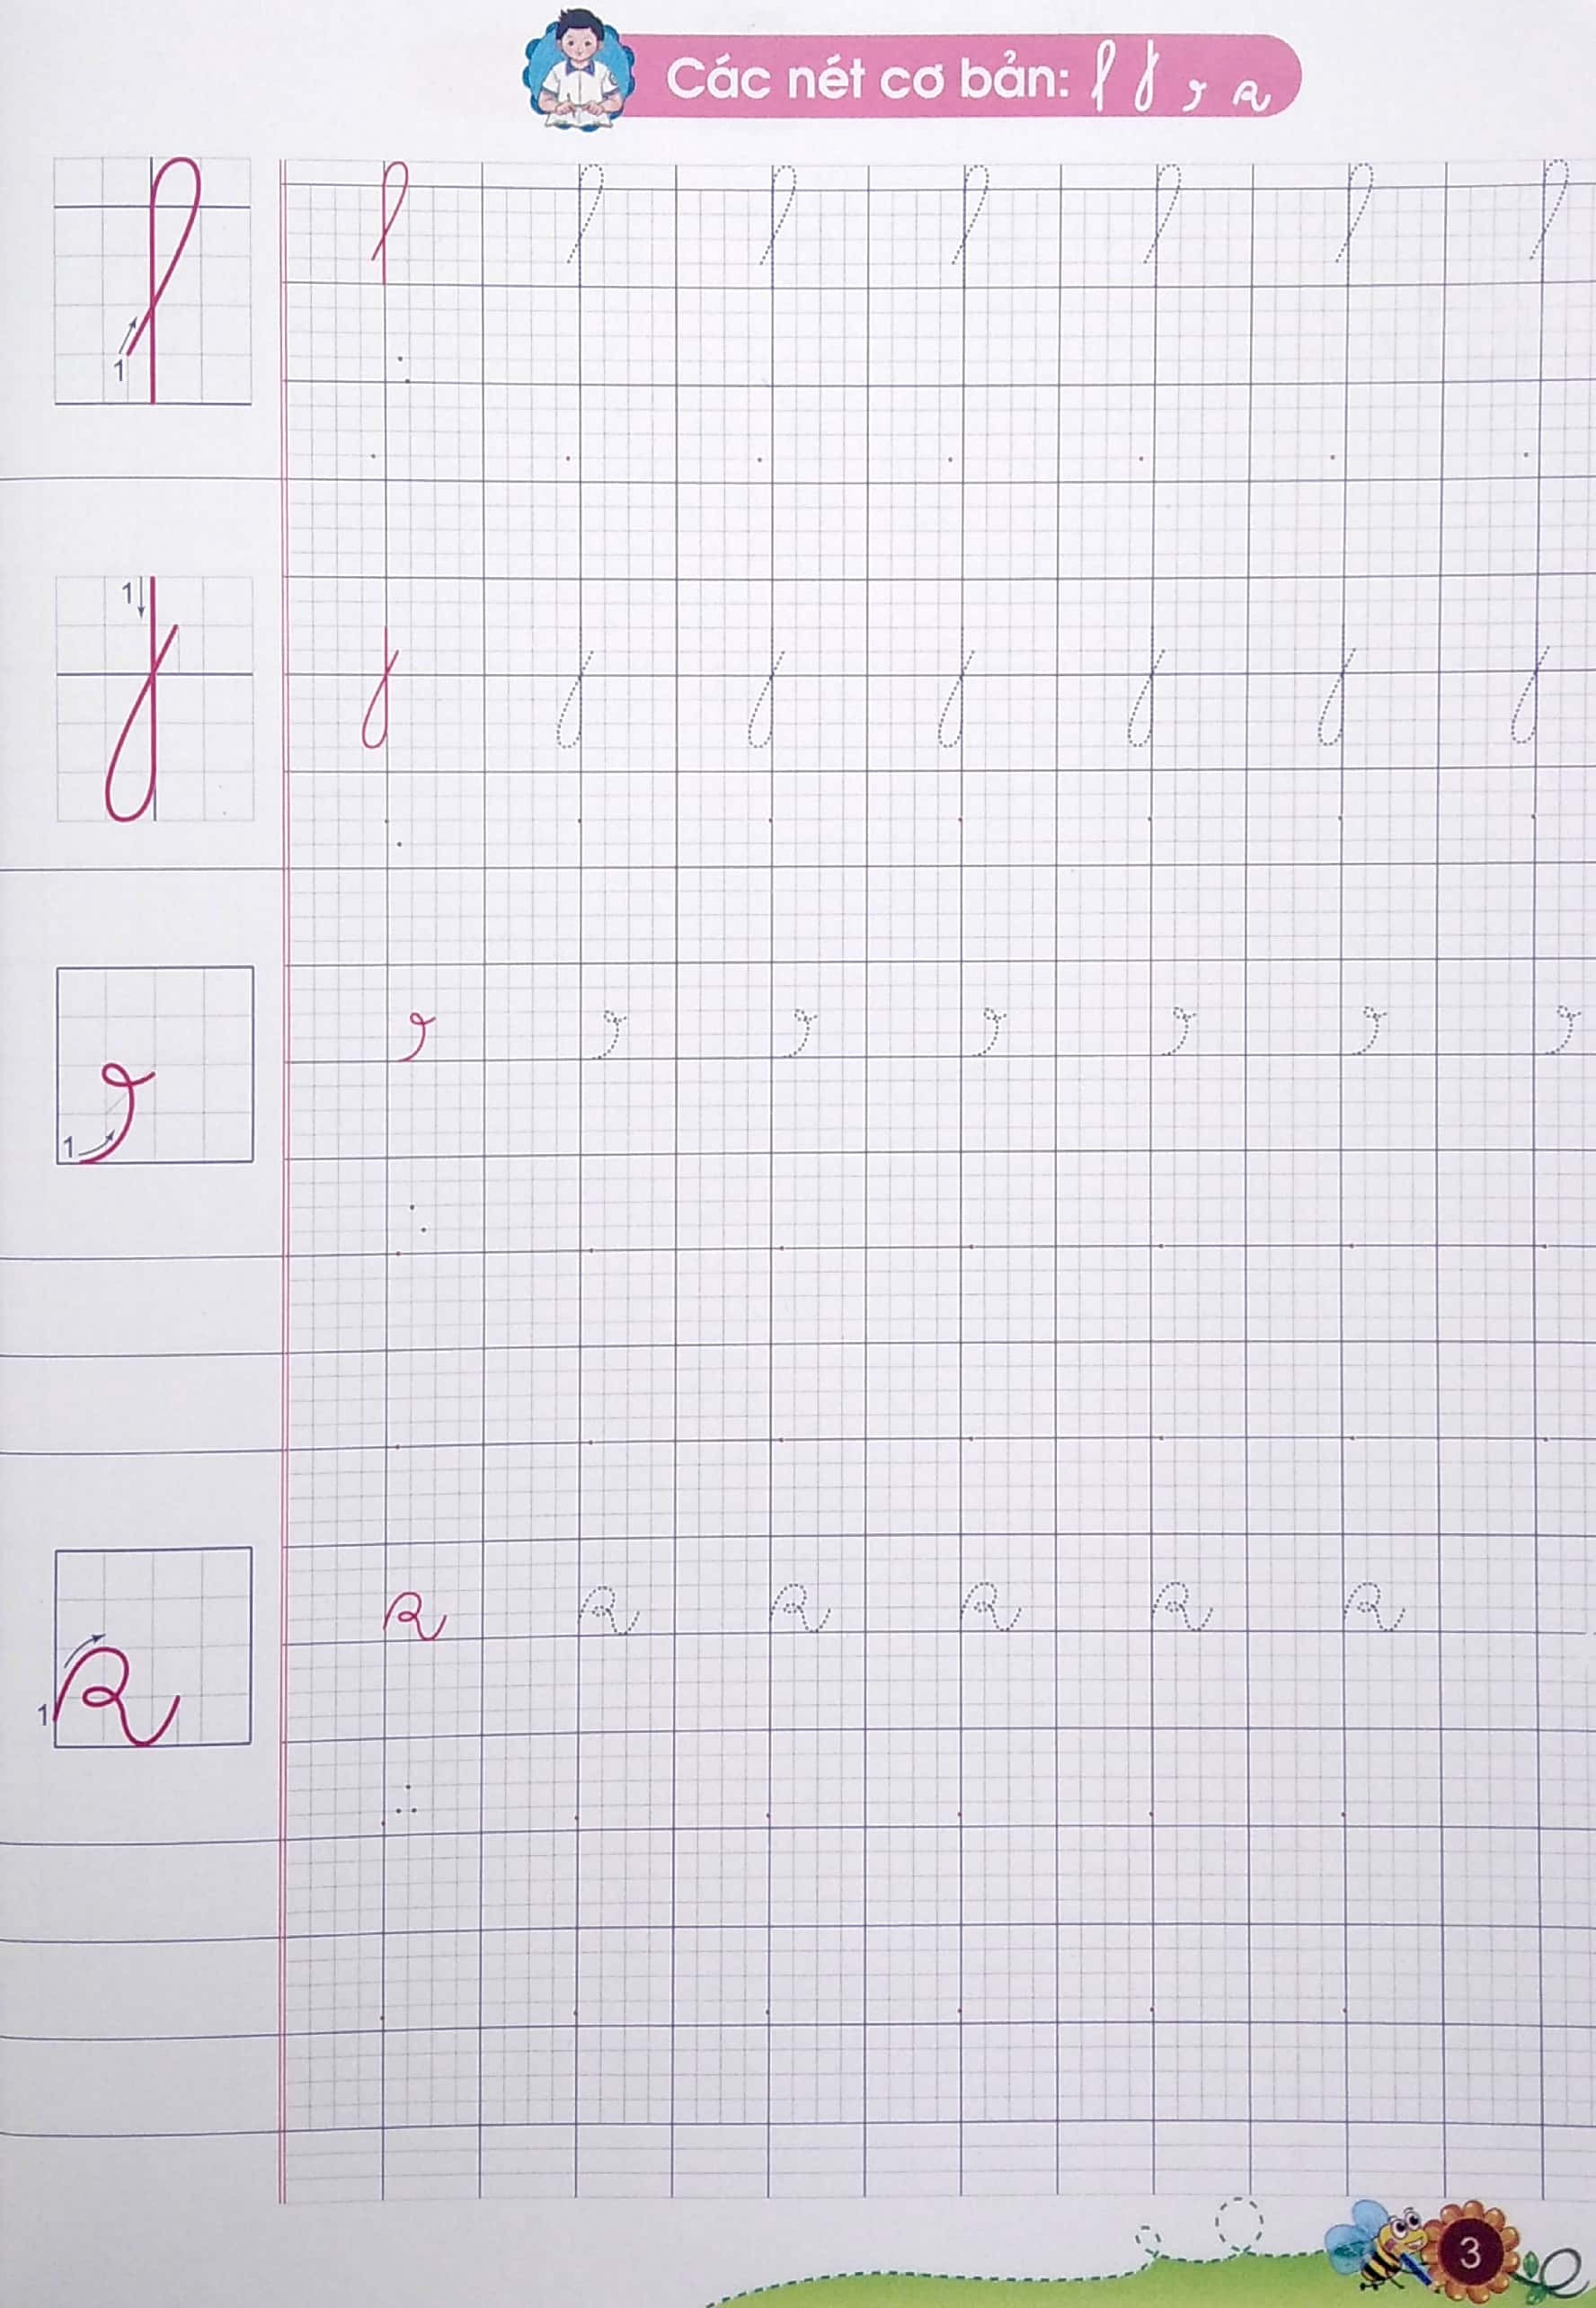 Các nét cơ bản:
1
1
1
1
3